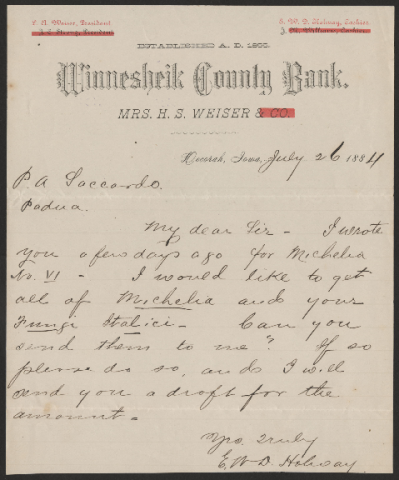 E. R. Weiser, President
J. C. Strong, President
E. W. D. Holway, Cashier
ESTABLISHED A. D. 1855.
Winnesheik County Bank.
MRS. H. S. WEISER & CO.
Decorah, Iowa, July 26 1884
P. A Saccardo.
Padua.
My dear Sir - I wrote
you a few days ago for Michelia
No. VI - I would like to get
all of Michelia and your
Fungi Italici - Can you
send them to me? If so
please do so, and I will
send you a draft for the
amount -
Yrs. Truly
E. W. D. Holway